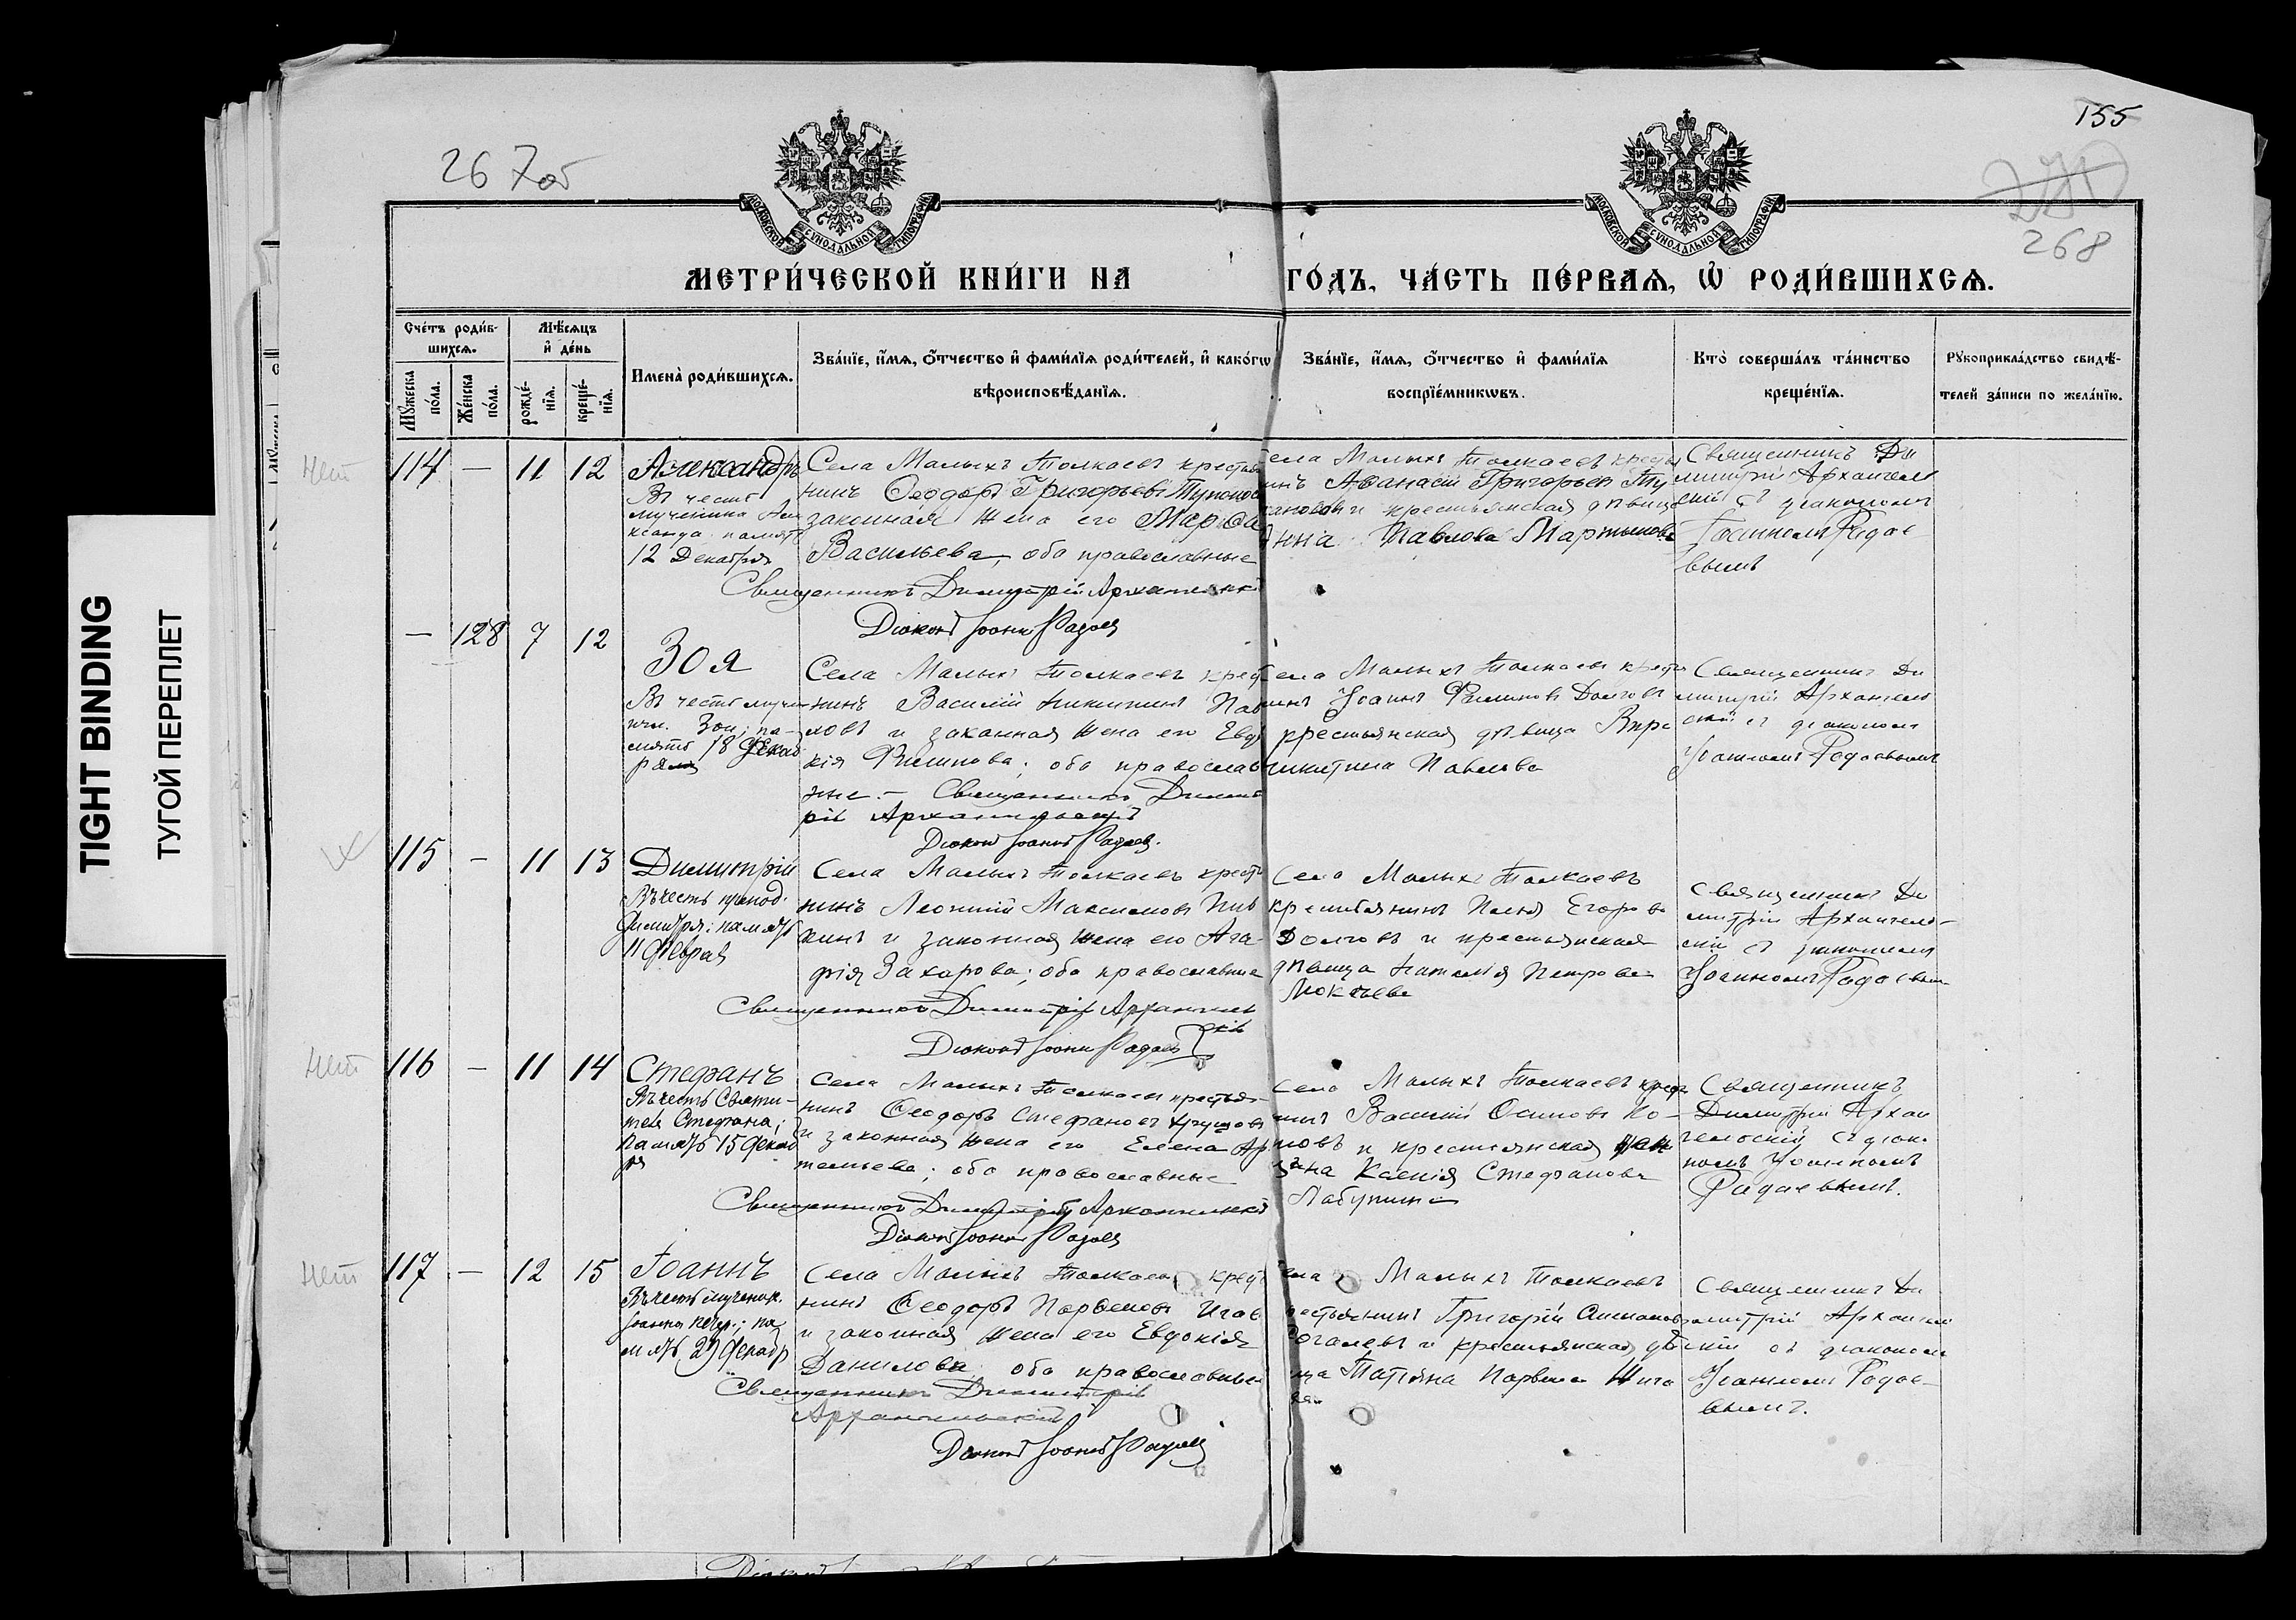 TIGHT BINDING
ТУГОЙ ПЕРЕПЛЕТ
267об
155
268
МОСКОВСКОЙ СѴНОДАЛЬНОЙ ТИПОГРАФІИ
МОСКОВСКОЙ СѴНОДАЛЬНОЙ ТИПОГРАФІИ
МЕТРИ́ЧЕСКОЙ КНИ́ГИ НА ГО́ДЪ, ЧА́СТЬ ПЕ́РВАѦ, Ѡ҆ РОДИ́ВШИХСѦ.
Сче́тъ роди́в-
шихсѧ.
Мꙋжеска по́ла.
Же́нска по́ла.
Мѣ́сѧцъ
и҆ де́нь
рожде́-
нїѧ.
креще́-
нїѧ.
Имена̀ роди́вшихсѧ.
Зва́нїе, и҆́мѧ, ѻ҆́тчество и҆ фами́лїѧ роди́телей, и҆ како́гѡ
вѣроисповѣ́данїѧ.
Зва́нїе, и҆́мѧ, ѻ҆́тчество и҆ фами́лїѧ
воспрїе́мникѡвъ.
Кто̀ соверша́лъ та́инство
креще́нїѧ.
Рꙋкоприкла́дство свидѣ́-
телей за́писи по жела́нїю.
нет
114 — 11 12
Александръ
Въ честь
мученика Але
ксандра память
12 Декабря
Села Малыхъ Толкаевъ крестья
нинъ Ѳеодоръ Григорьевъ
законная жена его Марѳа
Васильева, оба православные
Священникъ Димитрій Архангельскій
Діаконъ Іоаннъ Радаевъ
Села Малыхъ Толкаевъ кресть
инъ Аѳанасій Григорьевъ Ту
и крестьянская дѣвица
Анна Павлова Мартынова
Священникъ Ди
митрій Архангель
скій съ діакономъ
Іоанномъ Радае-
вымъ
— 128 7 12
Зоя
Въ честь муче
ницы Зои; па-
мять 18 Декаб
ря
Села Малыхъ Толкаевъ крест
нинъ Василій Никитинъ Пав
ловъ и законная жена его Евдо
кія Филипова; оба православ
ные. — Священникъ Димит
рій Архангельскій
Діаконъ Іоаннъ Радаевъ.
Села Малыхъ Толкаевъ кресть
инъ Іоаннъ Филиповъ Долговъ
крестьянская дѣвица Вѣра
Никитина Павлова
Священникъ Ди
митрій Архангель
скій съ діакономъ
Іоанномъ Радаевымъ
115 — 11 13
Димитрій
Въ честь препод.
Димитрія: память
11 Февраля
Села Малыхъ Толкаевъ крестья
нинъ Леонтій Максимовъ Пив
кинъ и законная жена его Ага-
фія Захарова; оба православные
Священникъ Димитрій Архангель
скій
Діаконъ Іоаннъ Радаевъ
Села Малыхъ Толкаевъ
крестьянинъ Егоровъ
Долговъ и крестьянская
дѣвица Наталія Петрова
Мокѣева
Священникъ Ди
митрій Архангель-
скій съ діакономъ
Іоанномъ Радаевым
нет
116 — 11 14
Стефанъ
Въ честь Святи-
теля Стефана;
Память 15 Декаб
ря
Села Малыхъ Толкаевъ крестья-
нинъ Ѳеодоръ Стефановъ
и законная жена его Елена Ар
темьева; оба православные
Священникъ Димитрій Архангельскій
Діаконъ Іоаннъ Радаевъ
Села Малыхъ Толкаевъ крест
нинъ Василій Осиповъ По-
повъ и крестьянская
жена Ксенія Стефанова
Лабутина
Священникъ
Димитрій Архан
гельскій съ діако
номъ Іоанномъ
Радаевымъ.
нет
117 — 12 15
Іоаннъ
Въ честь мученик.
Іоанна печер.; па
мять 29 Декабр
Села Малыхъ Толкаевъ крест
нинъ Ѳеодоръ Парѳеновъ
и законная жена его Евдокія
Данилова, оба православные
Священникъ Димитрій
Архангельскій
Діаконъ Іоаннъ Радаевъ
Села Малыхъ Толкаевъ
крестьянинъ Григорій
и крестьянская дѣ
вица Татіана
Священникъ Ди
митрій Архангель
скій съ діакономъ
Іоанномъ Радае-
вымъ.